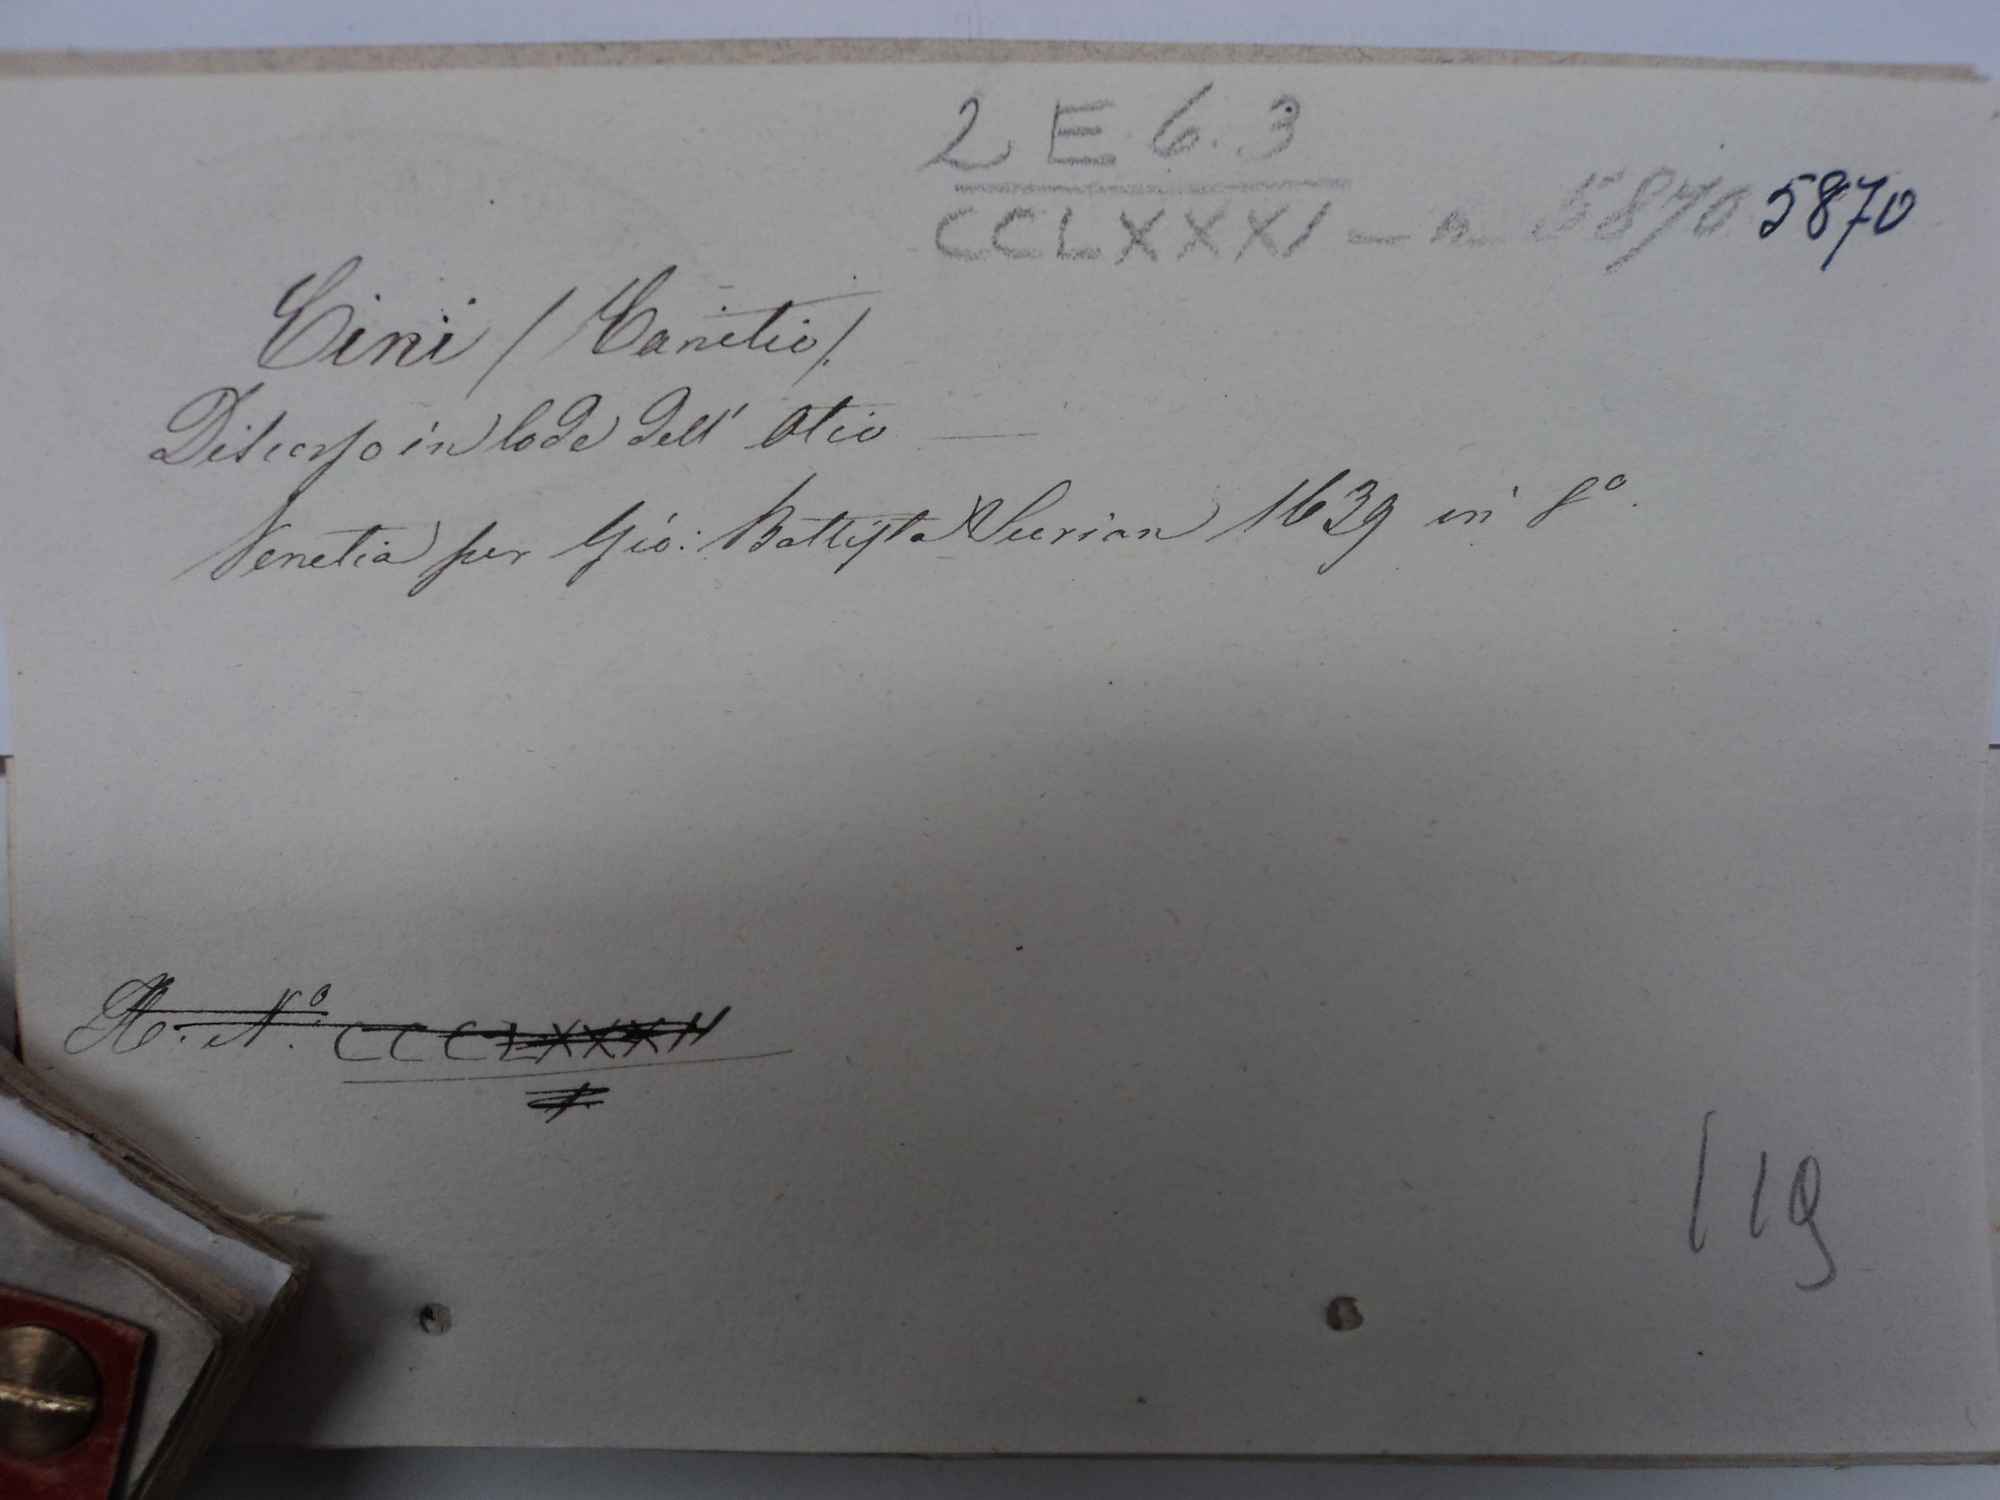 2 E 6.3
CCLXXXI - n 5870 5870
Cini / Canetio /.
Discorso in lode dell' Otio
Venetia per Gio: Battista Surian 1639 in 8º.
Nº CCCLXXXII
119